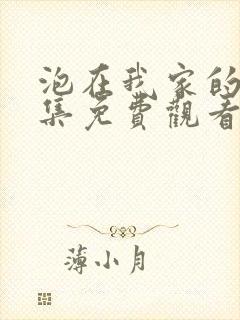 泡在我家的
集免費觀看
薄小月